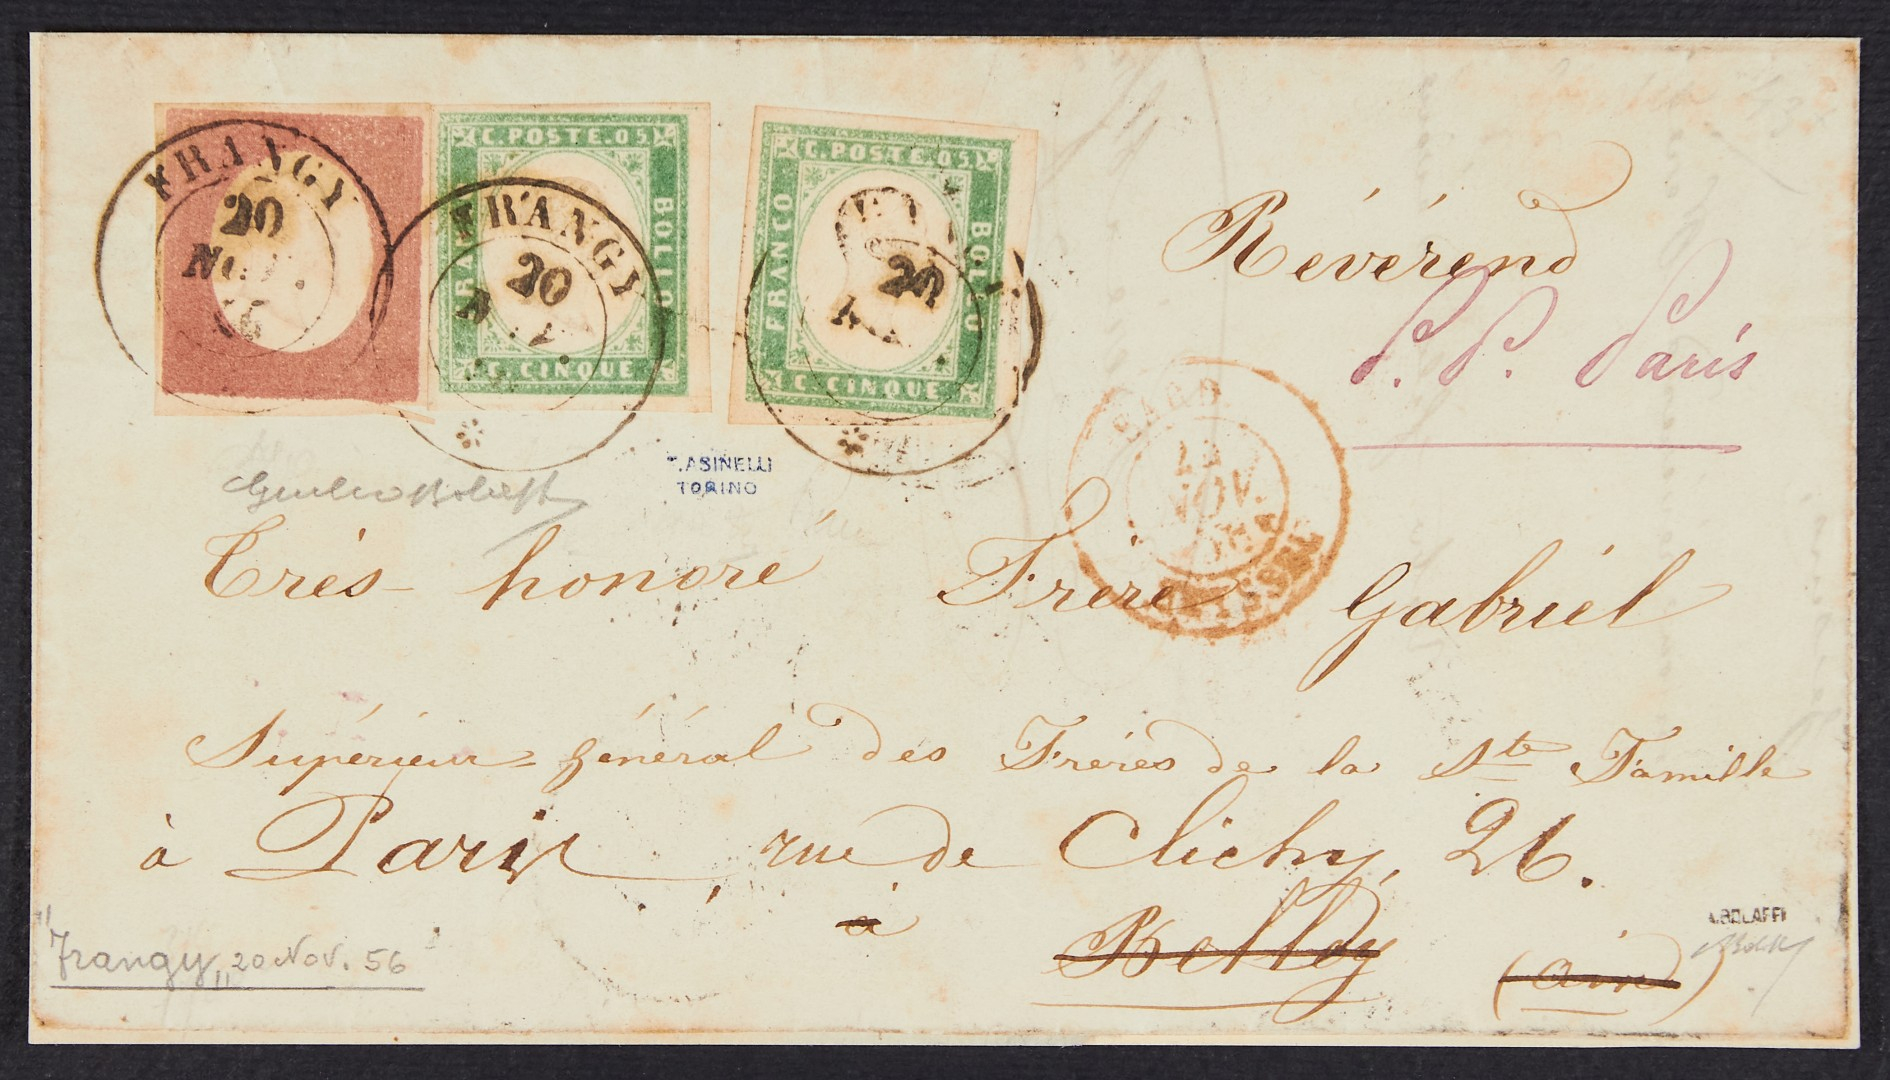 FRANGY
20
FRANGY
20
20
C. POSTE. 05
FRANCO
BOLLO
C. CINQUE
C. POSTE. 05
FRANCO
BOLLO
C. CINQUE
Révérend
P. P. Paris
NOV.
T. ASINELLI
TORINO
Très-honoré Frère Gabriël
Supérieur-général des Frères de la Ste Famille
à Paris, rue de Clichy, 26.
à
Belley
(ain)
A. BOLAFFI
"Frangy" 20 Nov. 56